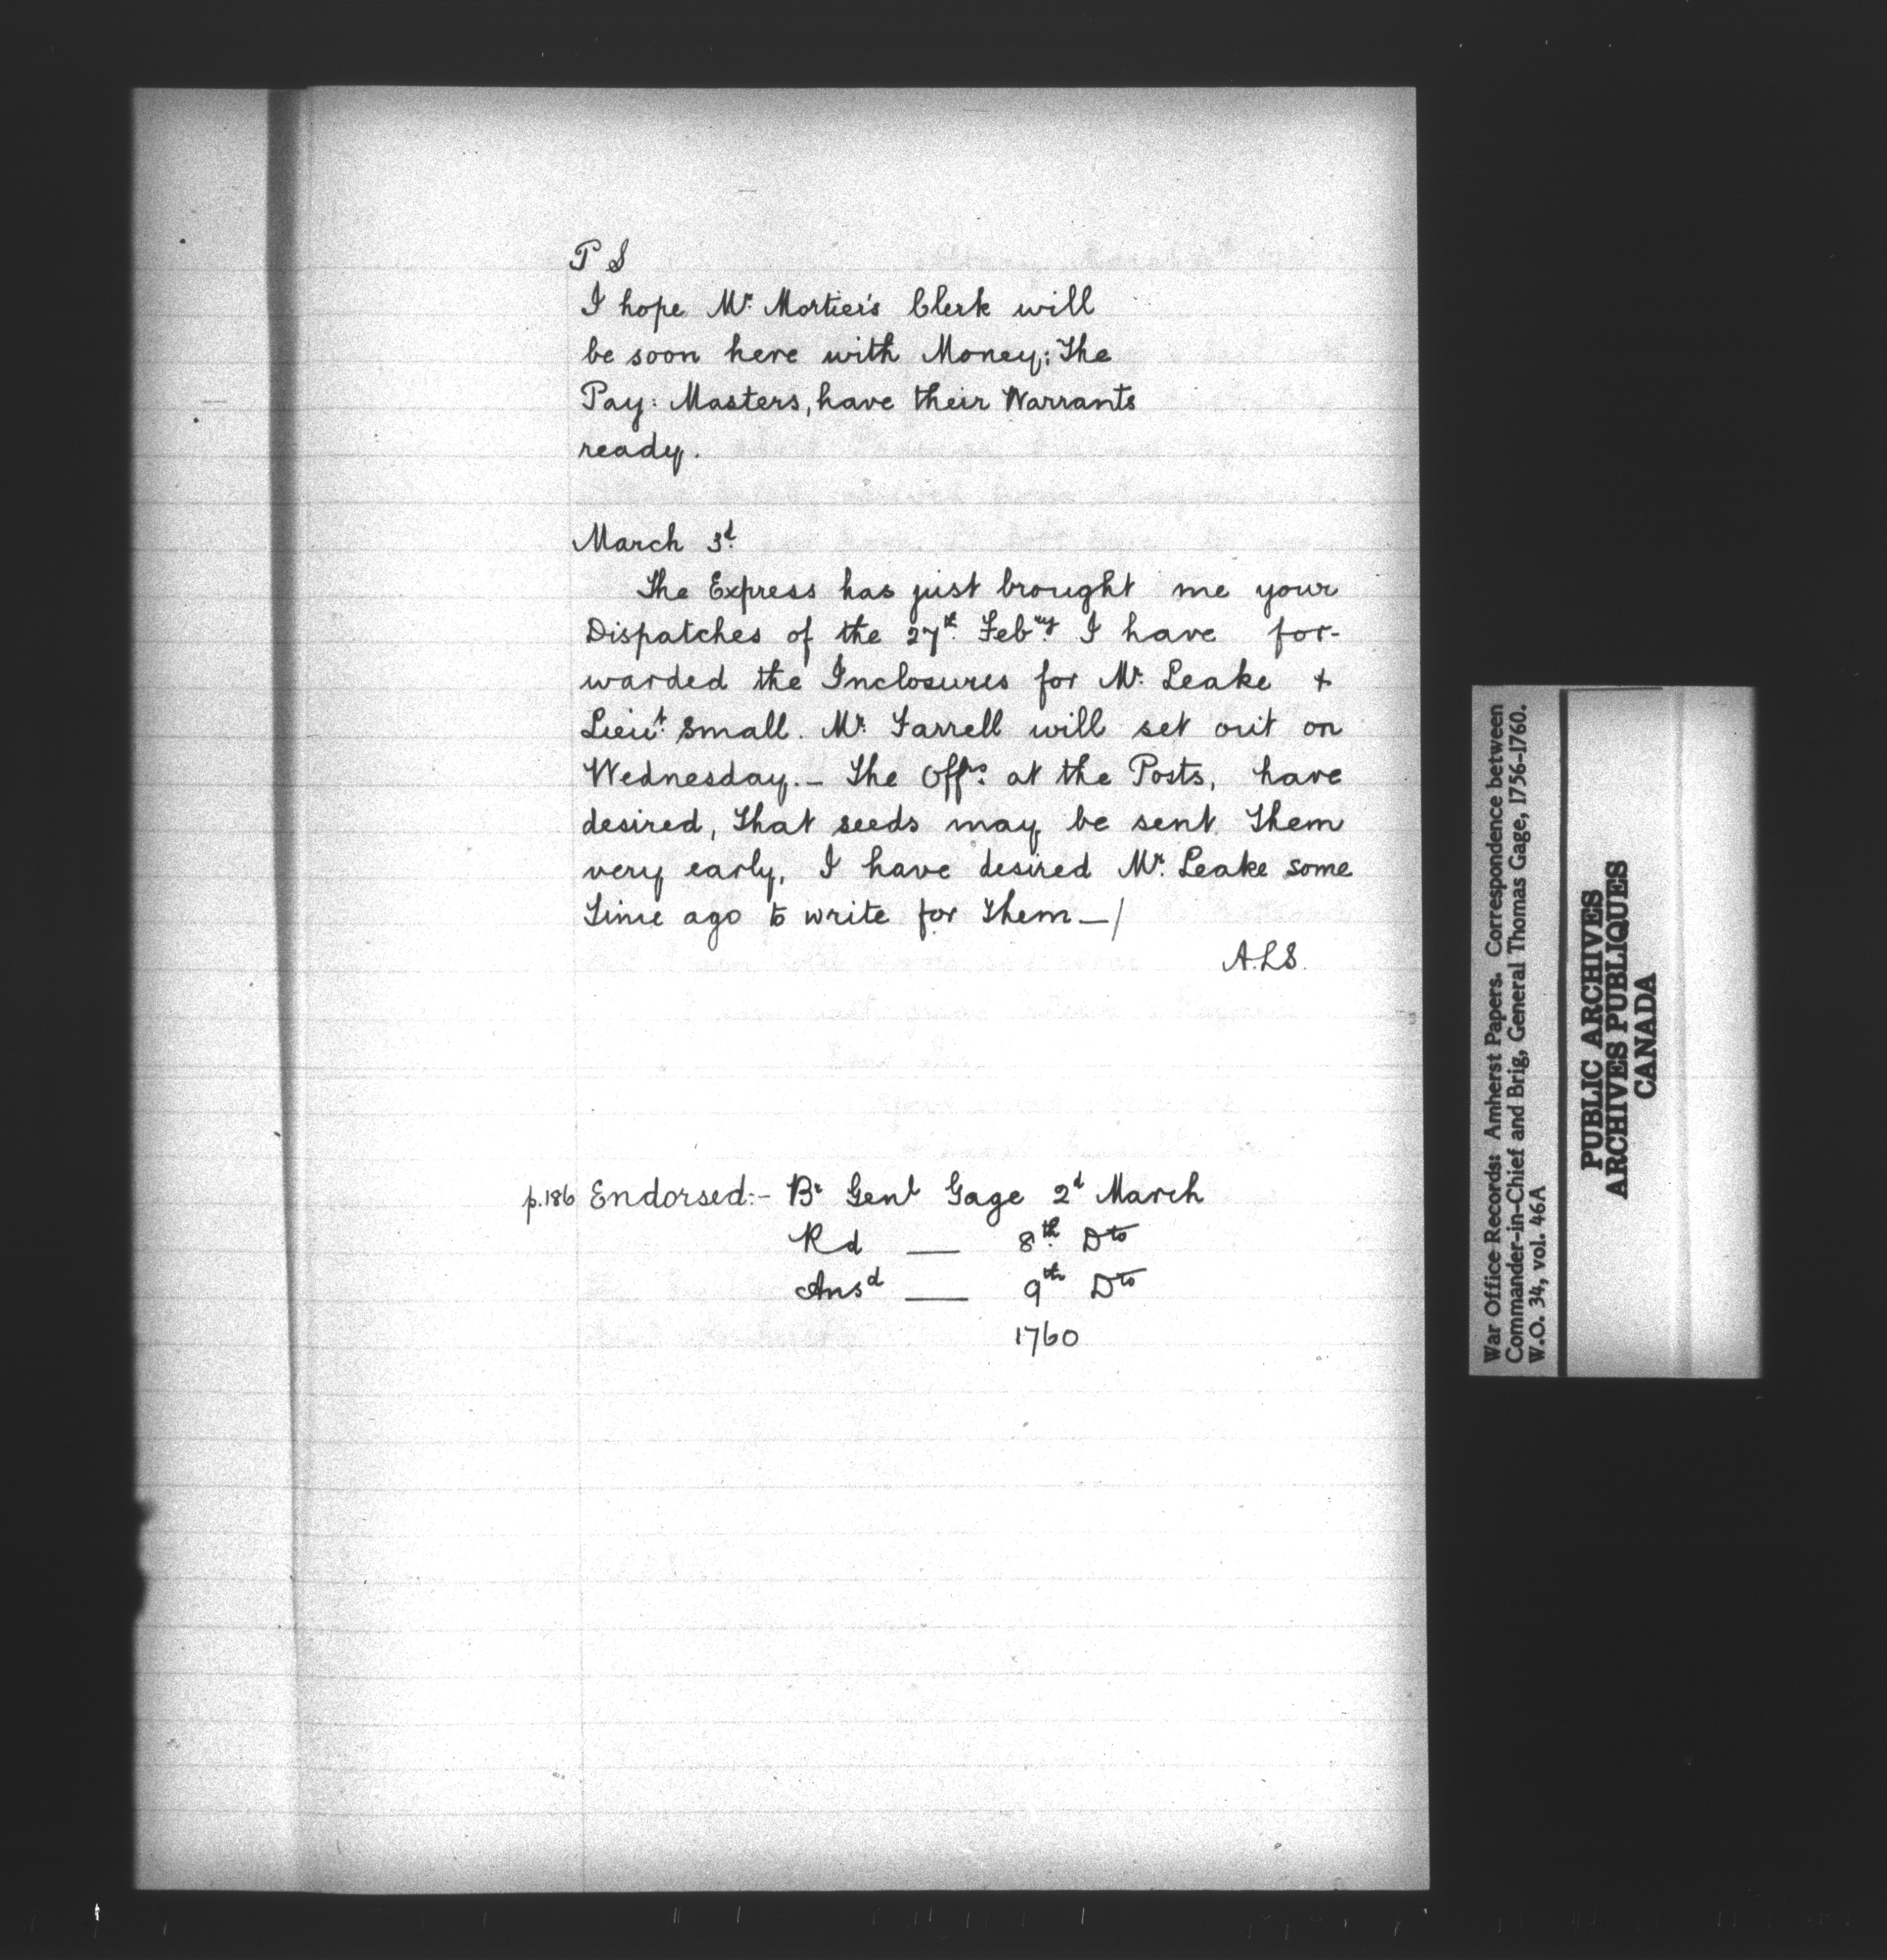 P S
I hope Mr. Mortier's Clerk will
be soon here with Money; The
Pay: Masters, have their Warrants
ready.
March 3d.
The Express has just brought me your
Dispatches of the 27th. Febry I have for-
warded the Inclosures for Mr. Leake +
Lieut. Small. Mr. Farrell will set out on
Wednesday. – The Offrs. at the Posts, have
desired, That seeds may be sent Them
very early, I have desired Mr. Leake some
Time ago to write for Them – /
A.L.S.
p.186 Endorsed:- Br Genl Gage 2d March
Rd — 8th. Dto
Ansd — 9th Dto
1760
War Office Records: Amherst Papers. Correspondence between
Commander-in-Chief and Brig, General Thomas Gage, 1756-1760.
W.O. 34, vol. 46A
PUBLIC ARCHIVES
ARCHIVES PUBLIQUES
CANADA